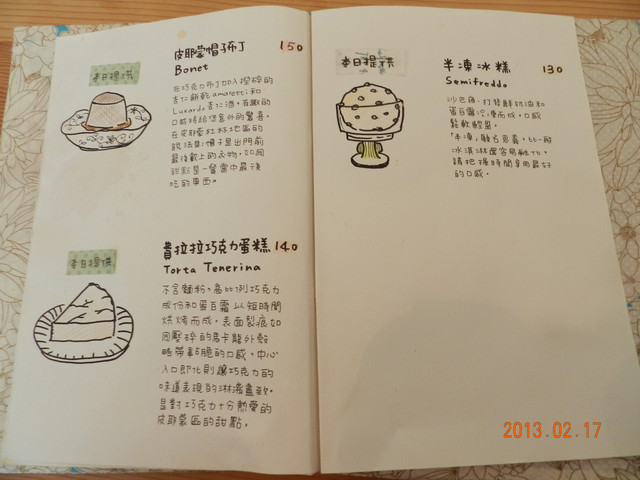 皮耶蒙帽子布丁 150
Bonet
本日提供
在巧克力布丁加入捏碎的
杏仁餅乾amaretti和
Luxardo杏仁酒,有趣的
口感將給您意外的驚喜。
在皮耶蒙杜林地區的
說法是:帽子是出門前
最後戴上的衣物,如同
甜點是一餐當中最後
吃的東西。
費拉拉巧克力蛋糕 140
Torta Tenerina
本日提供
不含麵粉。高比例巧克力
成份和蛋白霜以短時間
烘烤而成,表面裂痕如
同壓碎的馬卡龍外殼
略帶鬆脆的口感,中心
入口即化則讓巧克力的
味道表現的淋漓盡致,
是對巧克力十分熱愛的
皮耶蒙區的甜點。
本日提供
半凍冰糕 130
Semifreddo
沙巴雍、打發鮮奶油和
蛋白霜冷凍而成,口感
鬆軟輕盈。
「半凍」顧名思義,比一般
冰淇淋還容易融化。
請把握時間享用最好
的口感。
2013.02.17